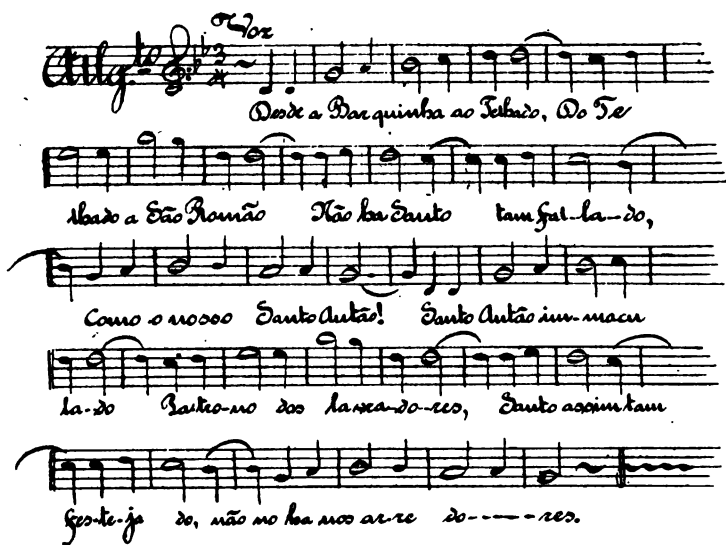 Voz
Allg.to 3/4
Desde a Barquinha ao Telhado, Do Te
lhado a São Romão Não ha Santo tam fal-la-do,
Como o nosso Santo Autão! Santo Autão im-macu
la-do Patro-no dos lavra-do-res, Santo assim tam
fes-te-ja do, não no ha nos ar-re do----res.